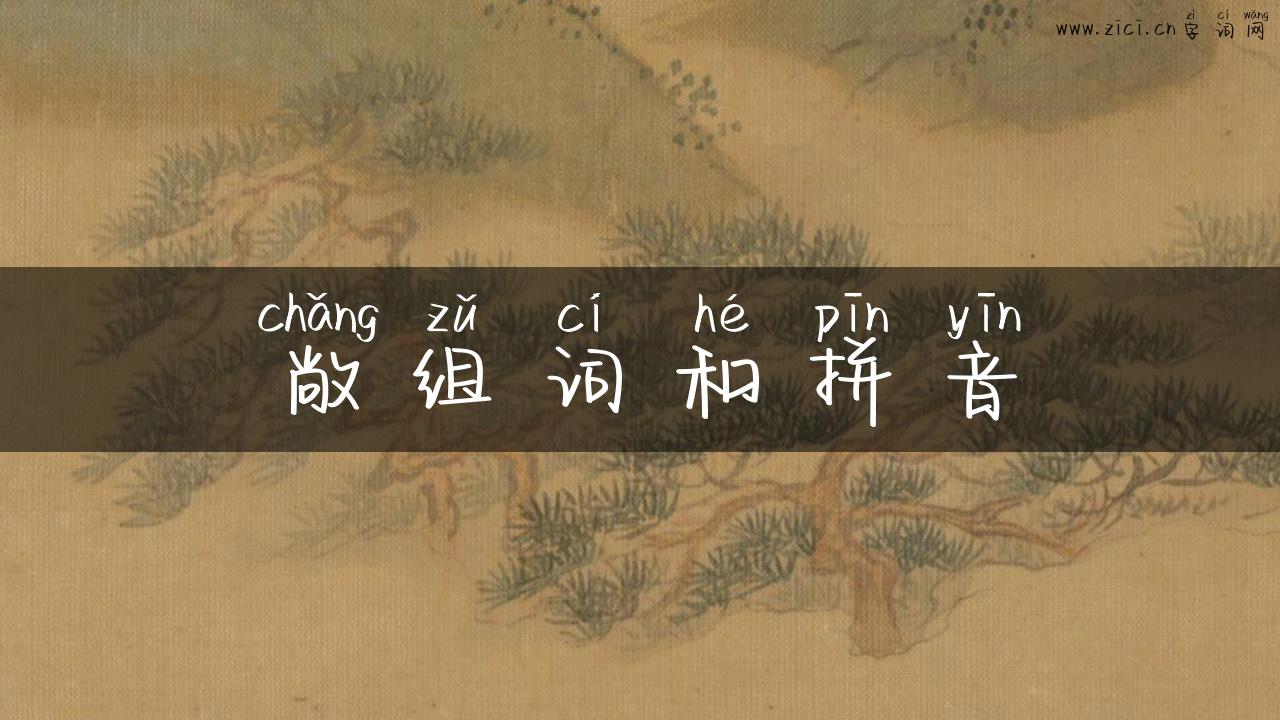 zì cí wǎng
www.zici.cn 字词网
chǎng zǔ cí hé pīn yīn
敞组词和拼音